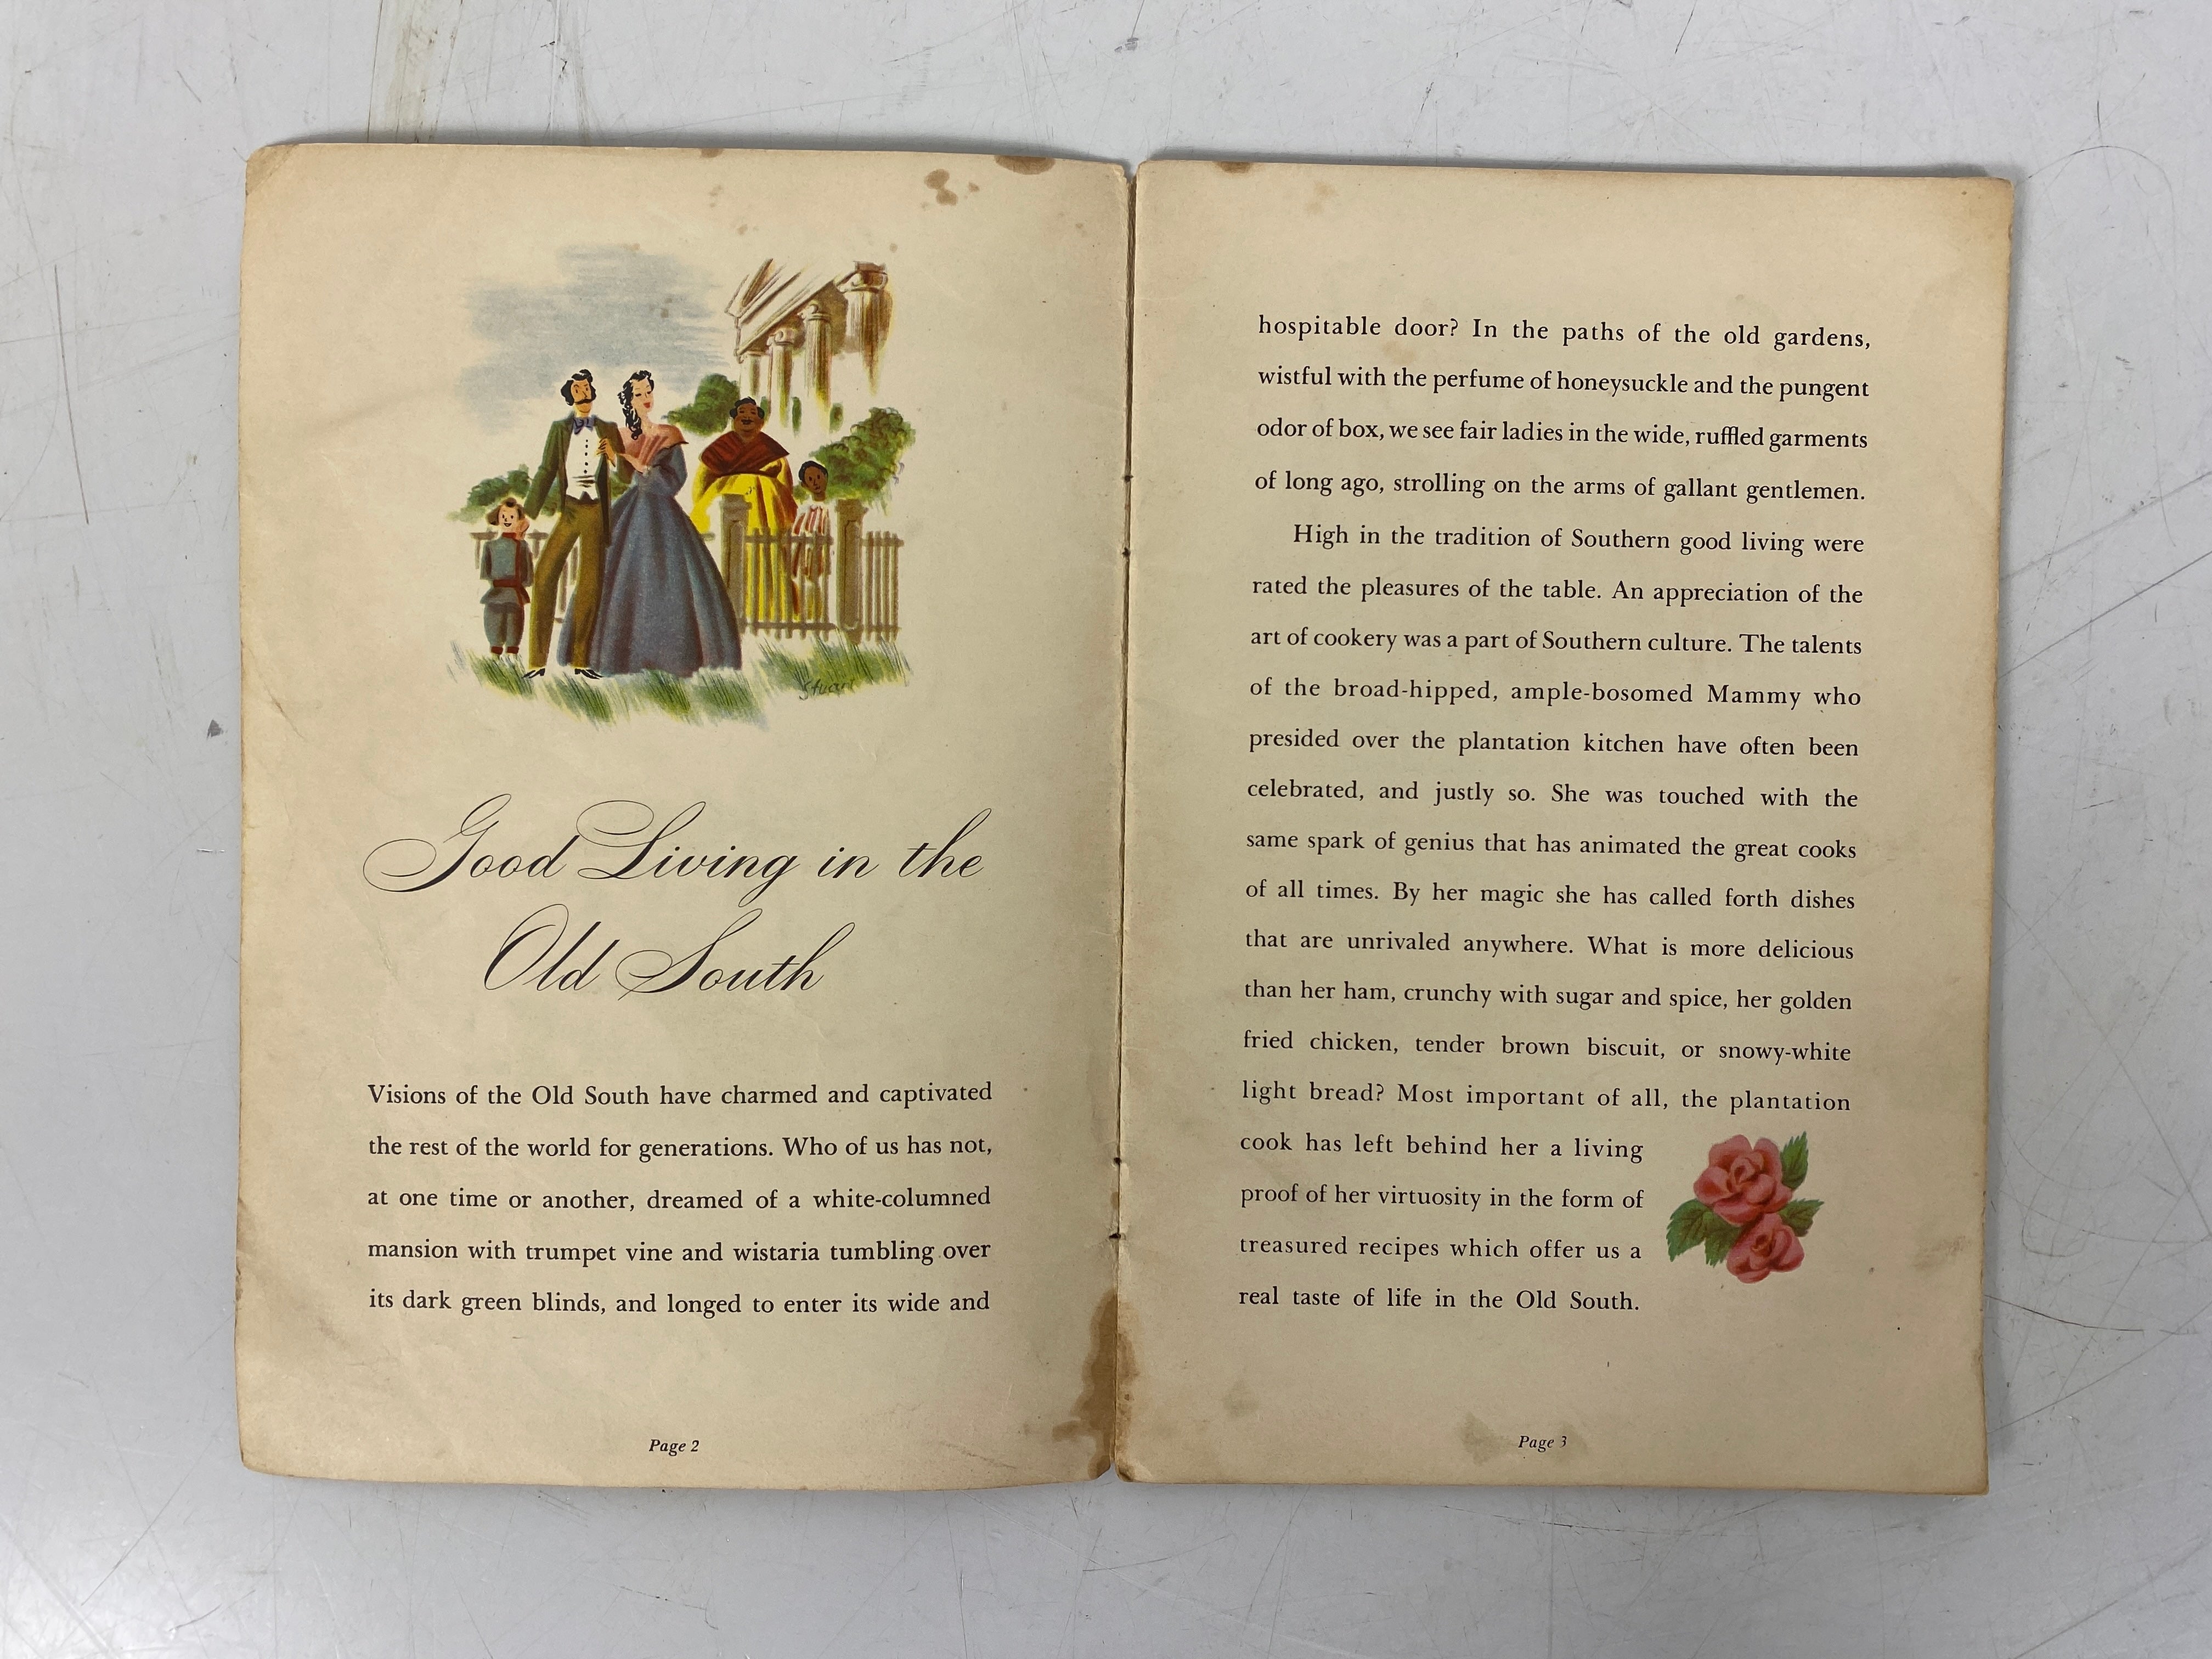 Good Living in the
Old South
Visions of the Old South have charmed and captivated
the rest of the world for generations. Who of us has not,
at one time or another, dreamed of a white-columned
mansion with trumpet vine and wistaria tumbling over
its dark green blinds, and longed to enter its wide and
Page 2
hospitable door? In the paths of the old gardens,
wistful with the perfume of honeysuckle and the pungent
odor of box, we see fair ladies in the wide, ruffled garments
of long ago, strolling on the arms of gallant gentlemen.
High in the tradition of Southern good living were
rated the pleasures of the table. An appreciation of the
art of cookery was a part of Southern culture. The talents
of the broad-hipped, ample-bosomed Mammy who
presided over the plantation kitchen have often been
celebrated, and justly so. She was touched with the
same spark of genius that has animated the great cooks
of all times. By her magic she has called forth dishes
that are unrivaled anywhere. What is more delicious
than her ham, crunchy with sugar and spice, her golden
fried chicken, tender brown biscuit, or snowy-white
light bread? Most important of all, the plantation
cook has left behind her a living
proof of her virtuosity in the form of
treasured recipes which offer us a
real taste of life in the Old South.
Page 3